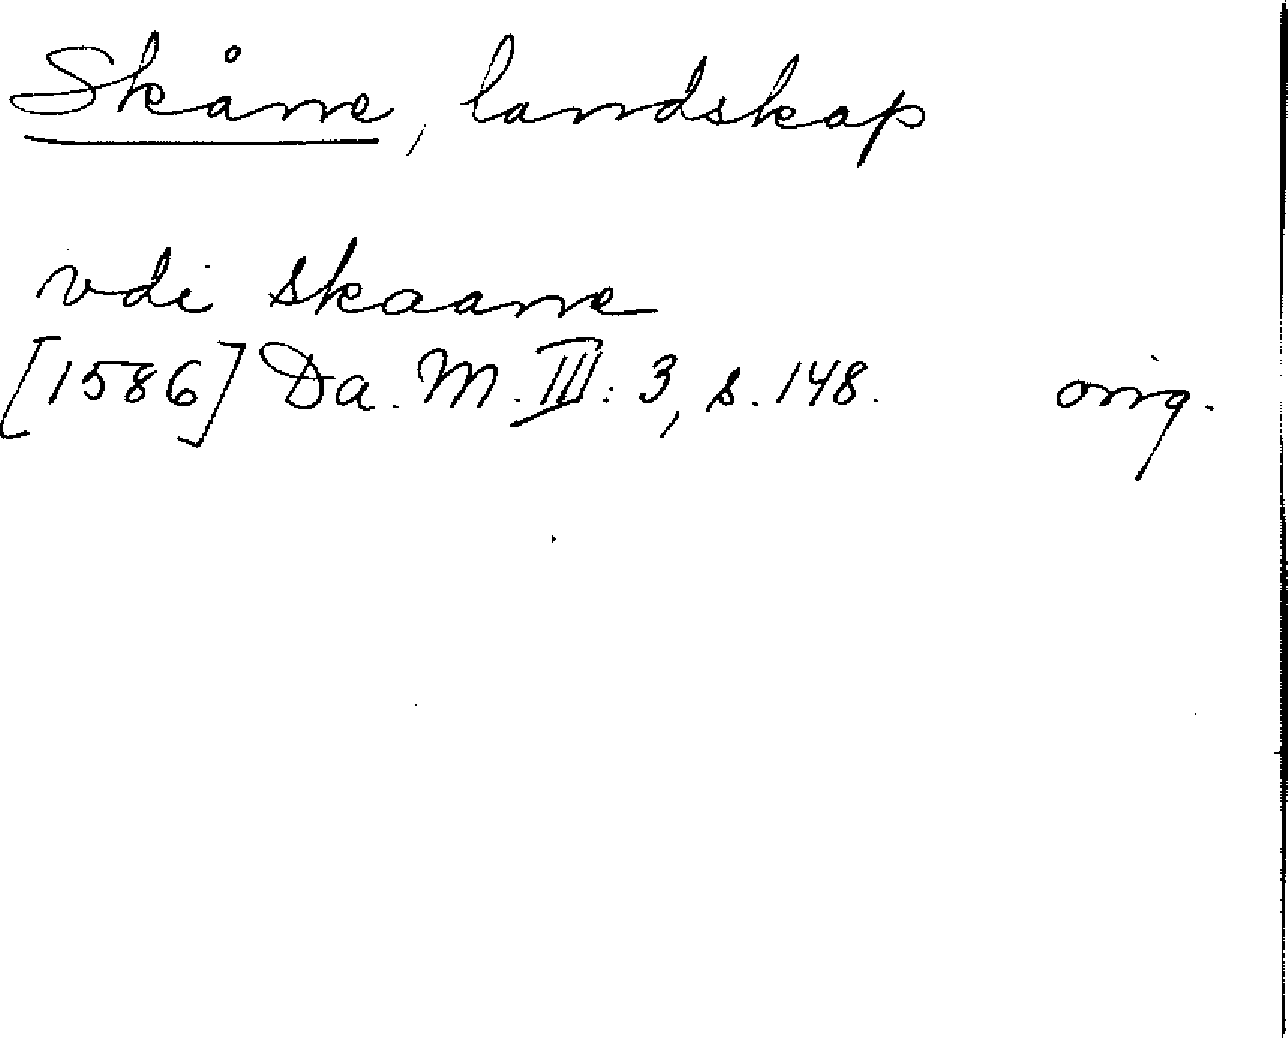 Skåne, landskap
vdi skaane
[1586] Da. M. III: 3, s. 148. orig.